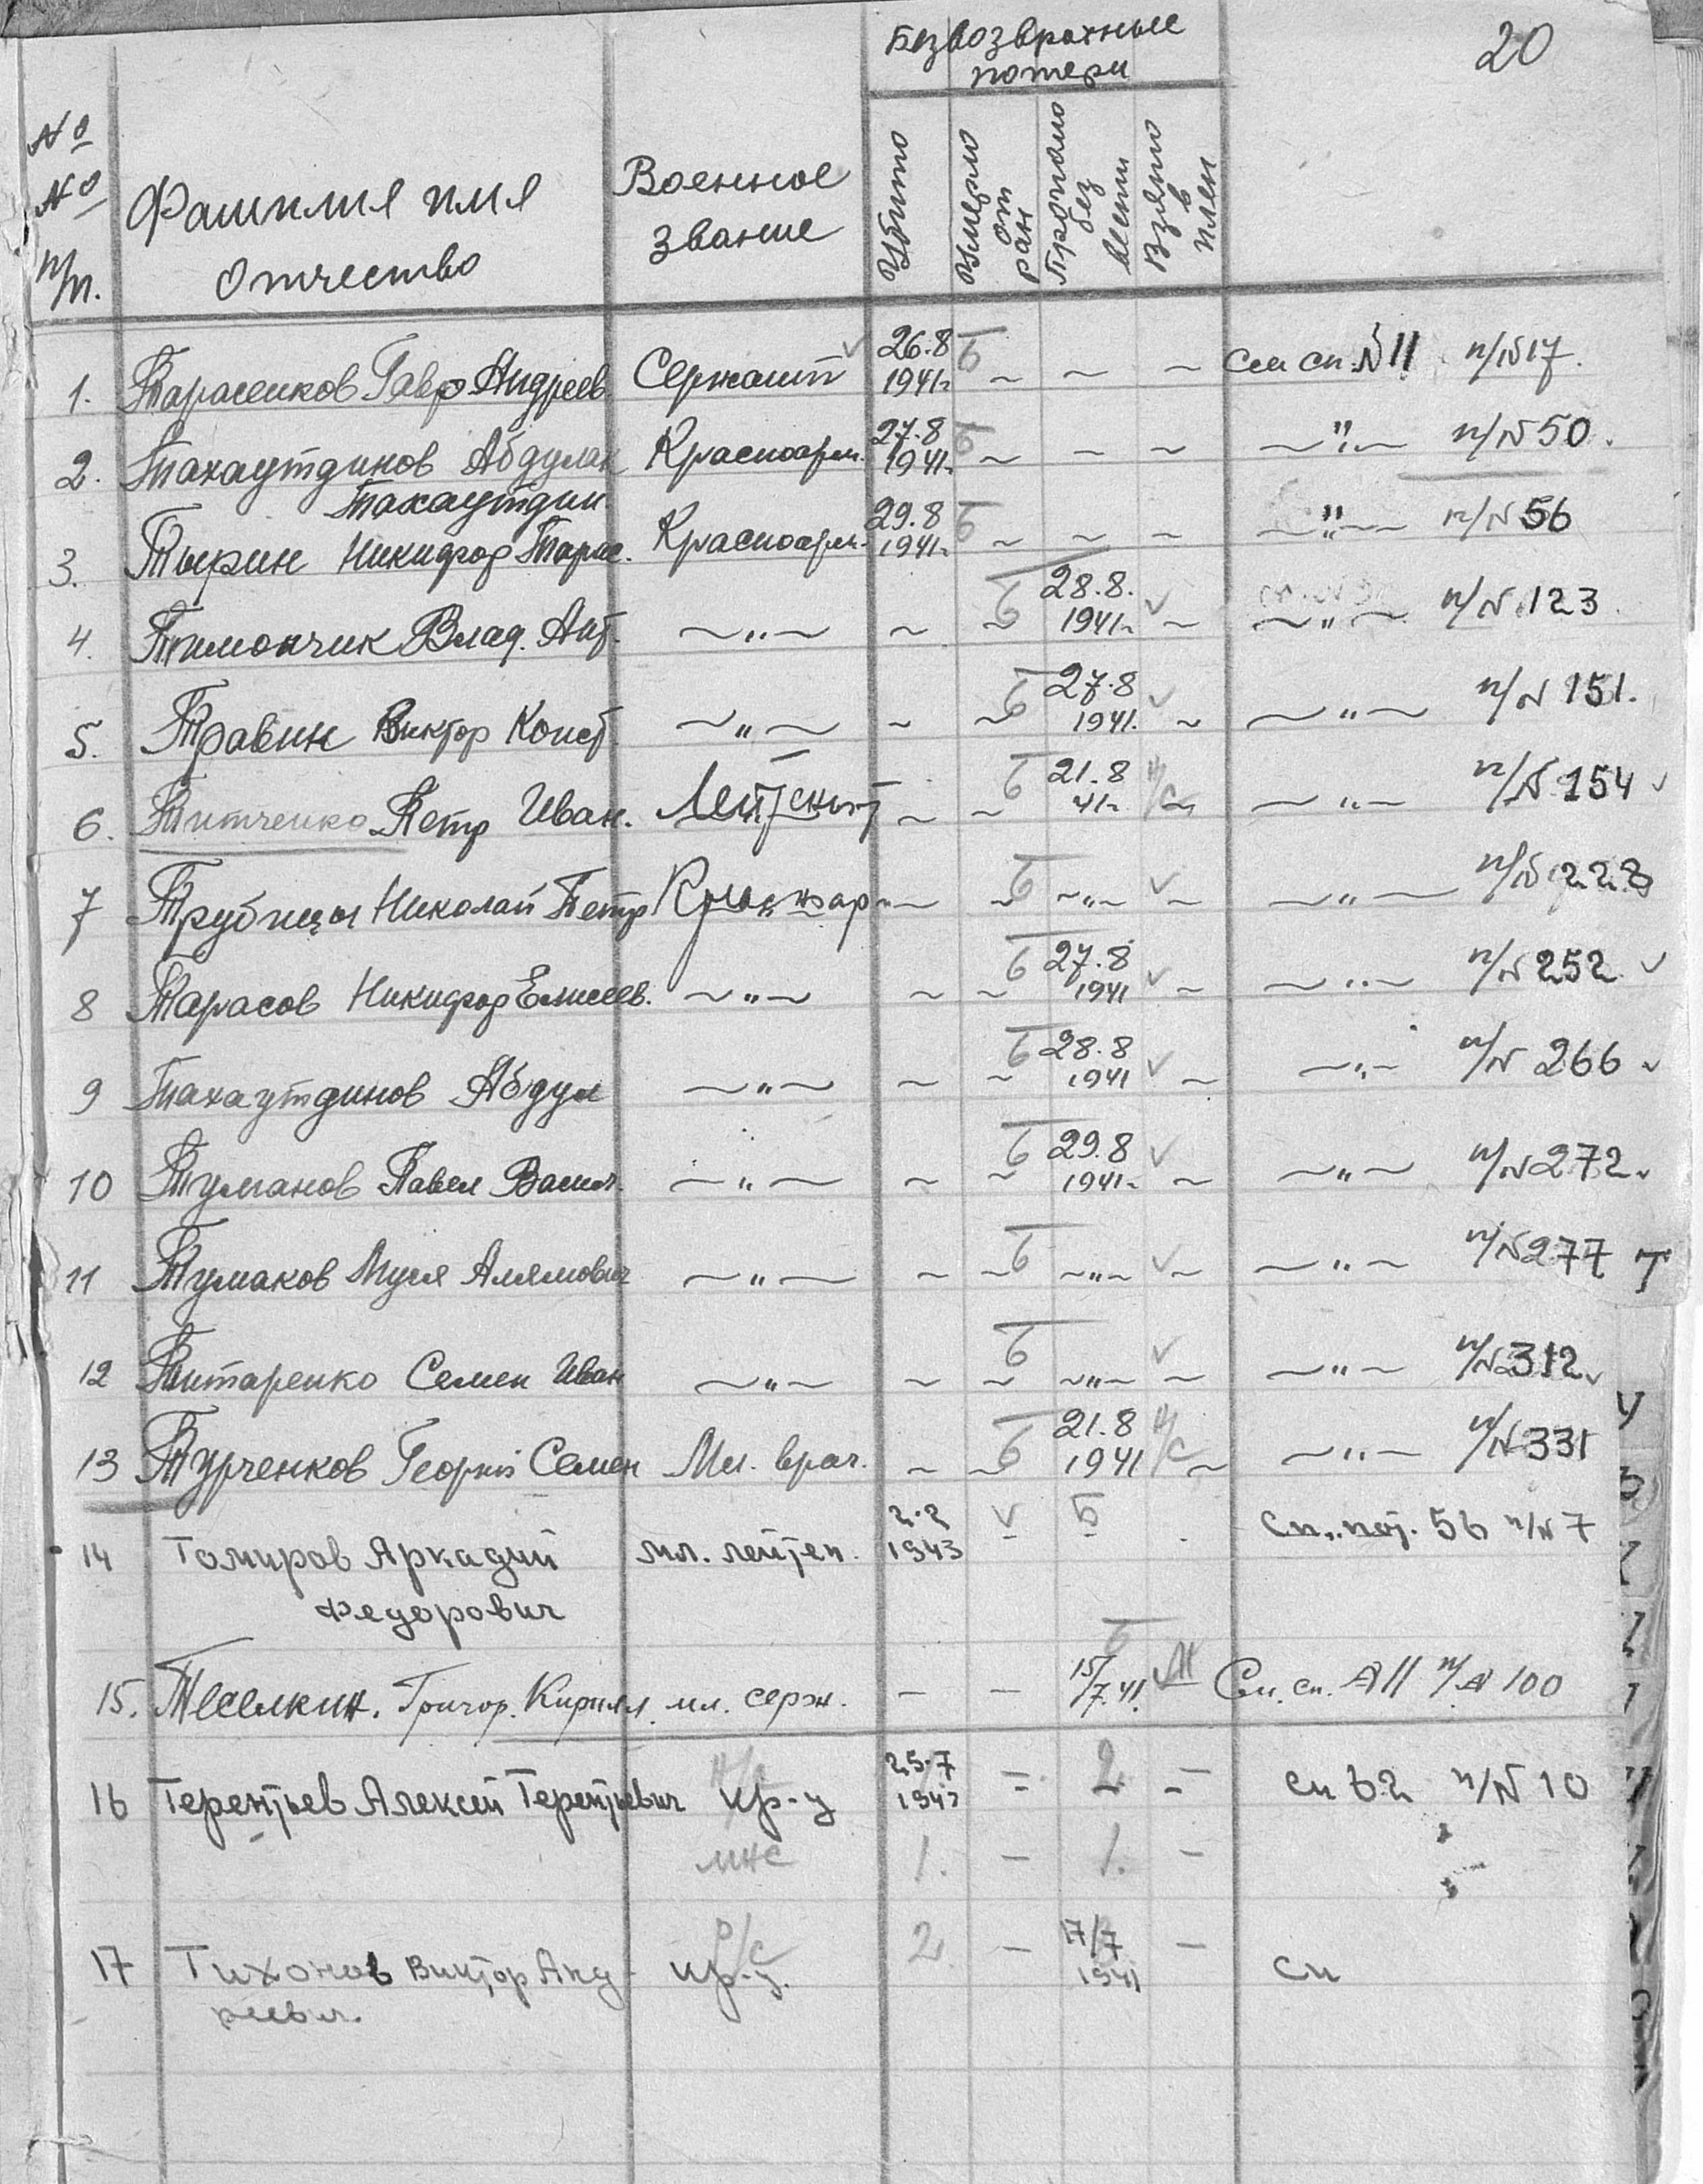 20
Безвозвратные
потери
№
№
п/п.
Фамилия имя
Отчество
Военное
звание
Убито
Умерло
от
ран
Пропало
без
вести
Взято
в
плен
1. Тарасенков Гавр Андреев Сержант 26.8 1941г ~ ~ ~ см сп. №11 п/№17.
2. Тахаутдинов Абдулах Красноарм. 27.8 1941г ~ ~ ~ —"— п/№50.
Тахаутдин
3. Тырин Никифор Тарас. Красноарм. 29.8 1941г ~ ~ ~ —"— п/№56
4. Тимончик Влад. Ант. —"— ~ ~ 28.8. 1941г ~ —"— п/№123
5. Травин Виктор Конст. —"— ~ ~ 27.8 1941. ~ —"— п/№151.
6. Титченко Петр Иван. Лейтенант ~ ~ 21.8 41г н/с ~ —"— п/№154
7 Николай Петр ~ ~ ~"~ ~ —"— п/№228
8 Тарасов Никифор Елисеев. —"— ~ ~ 27.8 1941 ~ —"— п/№252
9 Тахаутдинов Абдул —"— ~ ~ 28.8 1941 ~ —"— п/№266
10 Туманов Павел Васил. —"— ~ ~ 29.8 1941г ~ —"— п/№272
11 Тумаков Муся Алямович —"— ~ ~ ~"~ ~ —"— п/№277 Т
12 Титаренко Семен Иван —"— ~ ~ ~"~ ~ —"— п/№312
13 Турченков Георгий Семен Мл. врач. ~ ~ 21.8 1941 н/с ~ —"— п/№331
14 Томиров Аркадий мл. лейтен. 2.2 1943 - Б Сп. пот. 56 п/№7
Федорович
15. Григор. Кирилл. мл. серж. — — 15/7.41. См. сп. №11 п/№100
16 Терентьев Алексей Терентьевич кр-ц 25.7 1943 = 2 - сп 62 п/№10
мнс 1. — 1. —
17 Тихонов Виктор Анд р/с кр-ц. 2. — 17/7 1941 — сп
реевич.